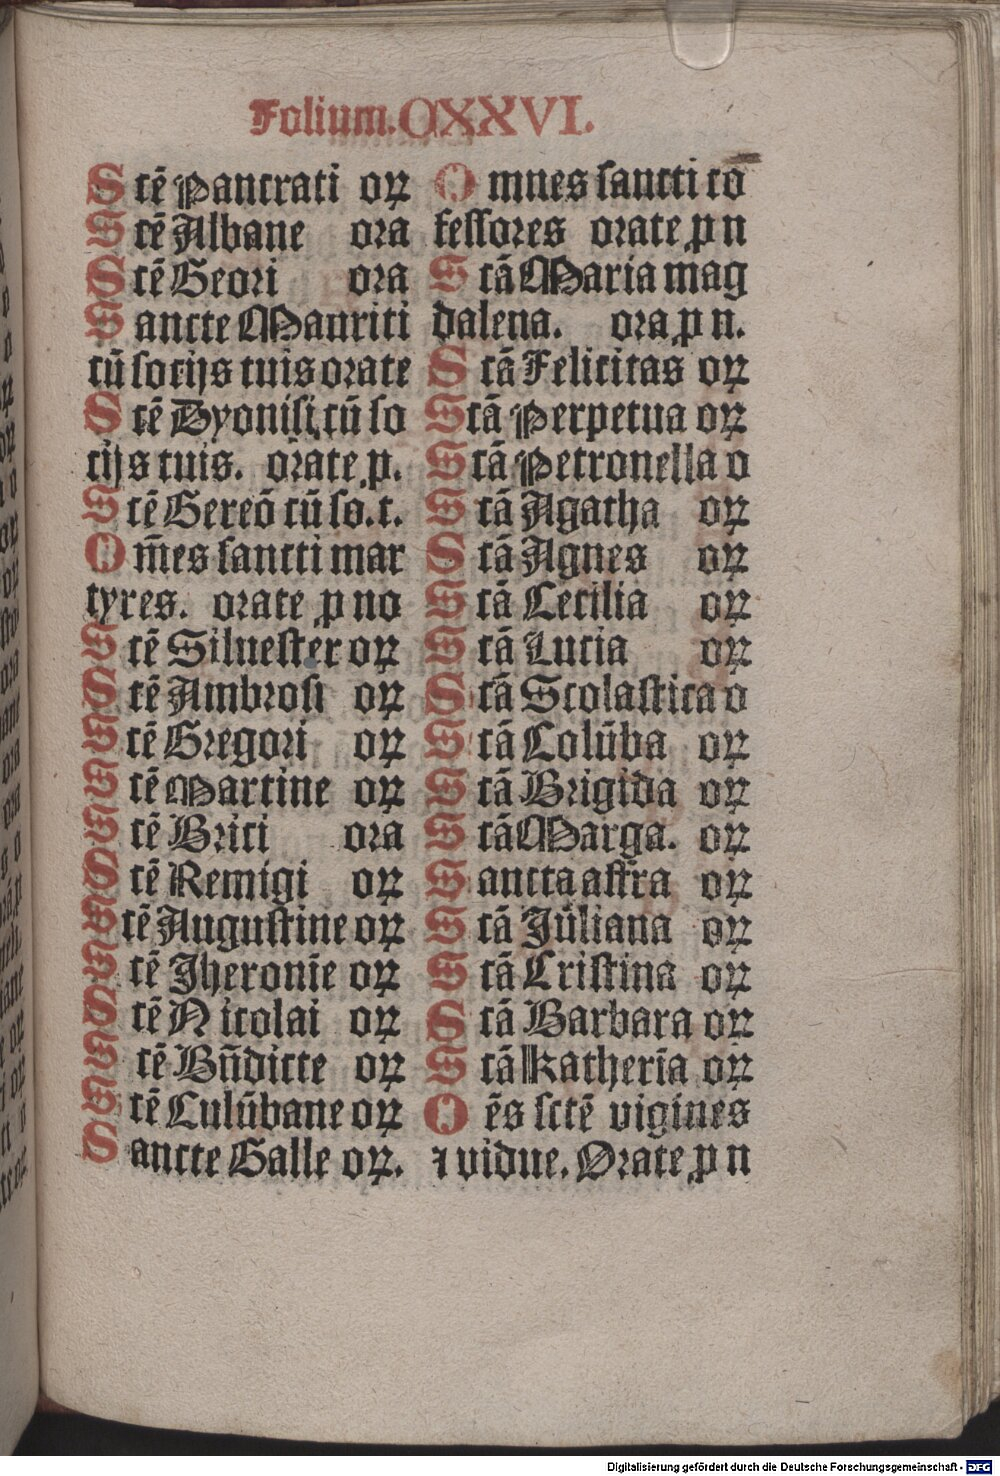 Folium.CXXVI.
S ctē Pancrati oꝝ
S ctē Albane ora
S ctē Geori ora
S ancte Mauriti
cū socijs tuis orate
S ctē Dyonisi cū so
cijs tuis. orate.p.
S ctē Gereō cū so.t.
O m̄es sancti mar
tyres. orate p no
S ctē Siluester oꝝ
S ctē Ambrosi oꝝ
S ctē Gregori oꝝ
S ctē Martine oꝝ
S ctē Brici ora
S ctē Remigi oꝝ
S ctē Augustine oꝝ
S ctē Jheronīe oꝝ
S ctē Nicolai oꝝ
S ctē Bn̄dicte oꝝ
S ctē Culūbane oꝝ
S ancte Galle oꝝ.
O mnes sancti cō
fessores orate p n
S ctā Maria mag
dalena. ora p n.
S ctā Felicitas oꝝ
S ctā Perpetua oꝝ
S ctā Petronella o
S ctā Agatha oꝝ
S ctā Agnes oꝝ
S ctā Cecilia oꝝ
S ctā Lucia oꝝ
S ctā Scolastica o
S ctā Colūba oꝝ
S ctā Brigida oꝝ
S ctā Marga. oꝝ
S ancta affra oꝝ
S ctā Juliana oꝝ
S ctā Cristina oꝝ
S ctā Barbara oꝝ
S ctā Katherīa oꝝ
O ēs sctē vigines
⁊ vidue. Orate p n
Digitalisierung gefördert durch die Deutsche Forschungsgemeinschaft - DFG